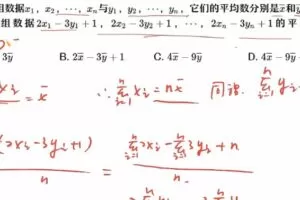 组数据x₁, x₂, ⋯, xₙ与y₁, y₂, ⋯, yₙ, 它们的平均数分别是x̄和ȳ
组数据2x₁−3y₁+1, 2x₂−3y₂+1, ⋯, 2xₙ−3yₙ+1的平
3ȳ B. 2x̄−3ȳ+1 C. 4x̄−9ȳ D. 4x̄−9ȳ
xᵢ = x̄ ∴ ∑ᵢ₌₁ⁿ xᵢ = nx̄ 同理. ∑ᵢ₌₁ⁿ y
(2xᵢ−3yᵢ+1) / n = (∑ᵢ₌₁ⁿ 2xᵢ − ∑ᵢ₌₁ⁿ 3yᵢ + n) / n